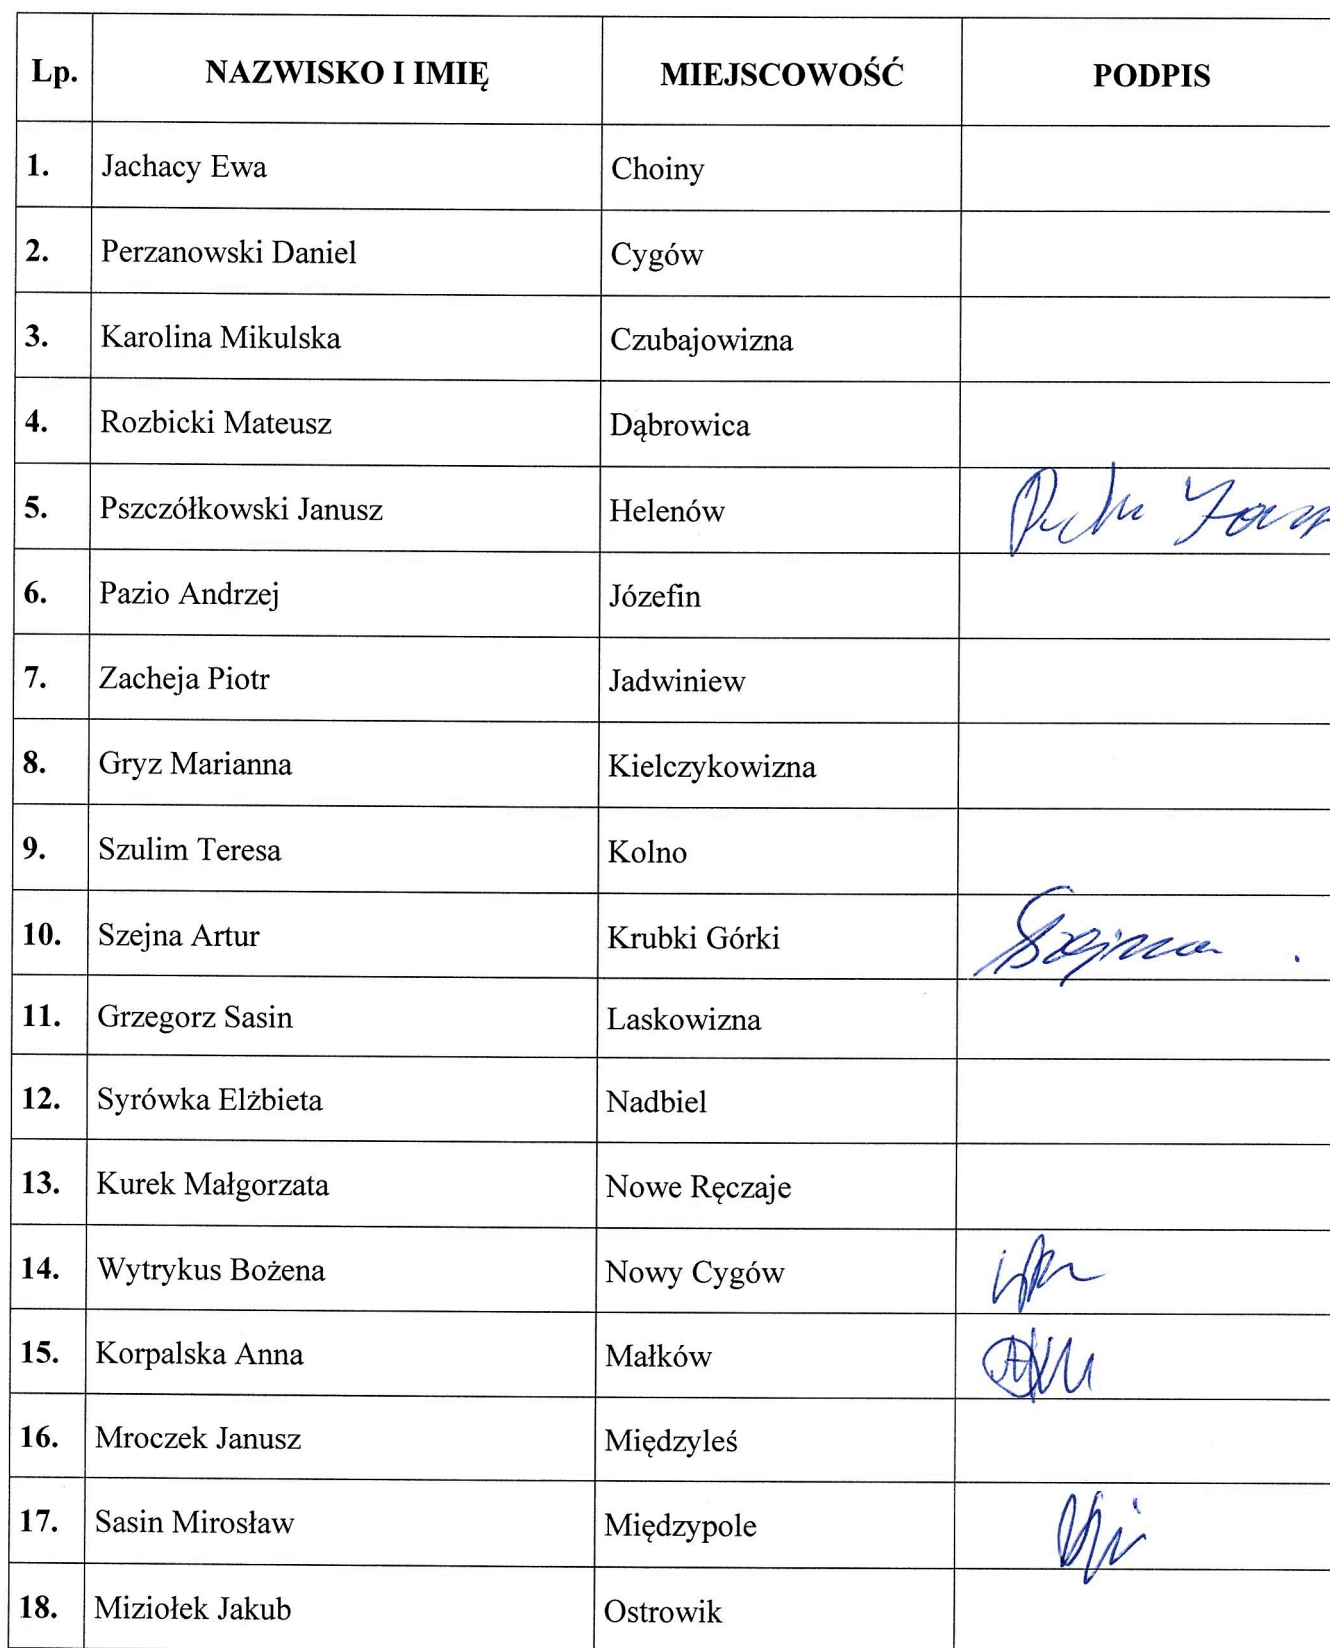 Lp. NAZWISKO I IMIĘ MIEJSCOWOŚĆ PODPIS
1. Jachacy Ewa Choiny
2. Perzanowski Daniel Cygów
3. Karolina Mikulska Czubajowizna
4. Rozbicki Mateusz Dąbrowica
5. Pszczółkowski Janusz Helenów
6. Pazio Andrzej Józefin
7. Zacheja Piotr Jadwiniew
8. Gryz Marianna Kielczykowizna
9. Szulim Teresa Kolno
10. Szejna Artur Krubki Górki
11. Grzegorz Sasin Laskowizna
12. Syrówka Elżbieta Nadbiel
13. Kurek Małgorzata Nowe Ręczaje
14. Wytrykus Bożena Nowy Cygów
15. Korpalska Anna Małków
16. Mroczek Janusz Międzyleś
17. Sasin Mirosław Międzypole
18. Miziołek Jakub Ostrowik